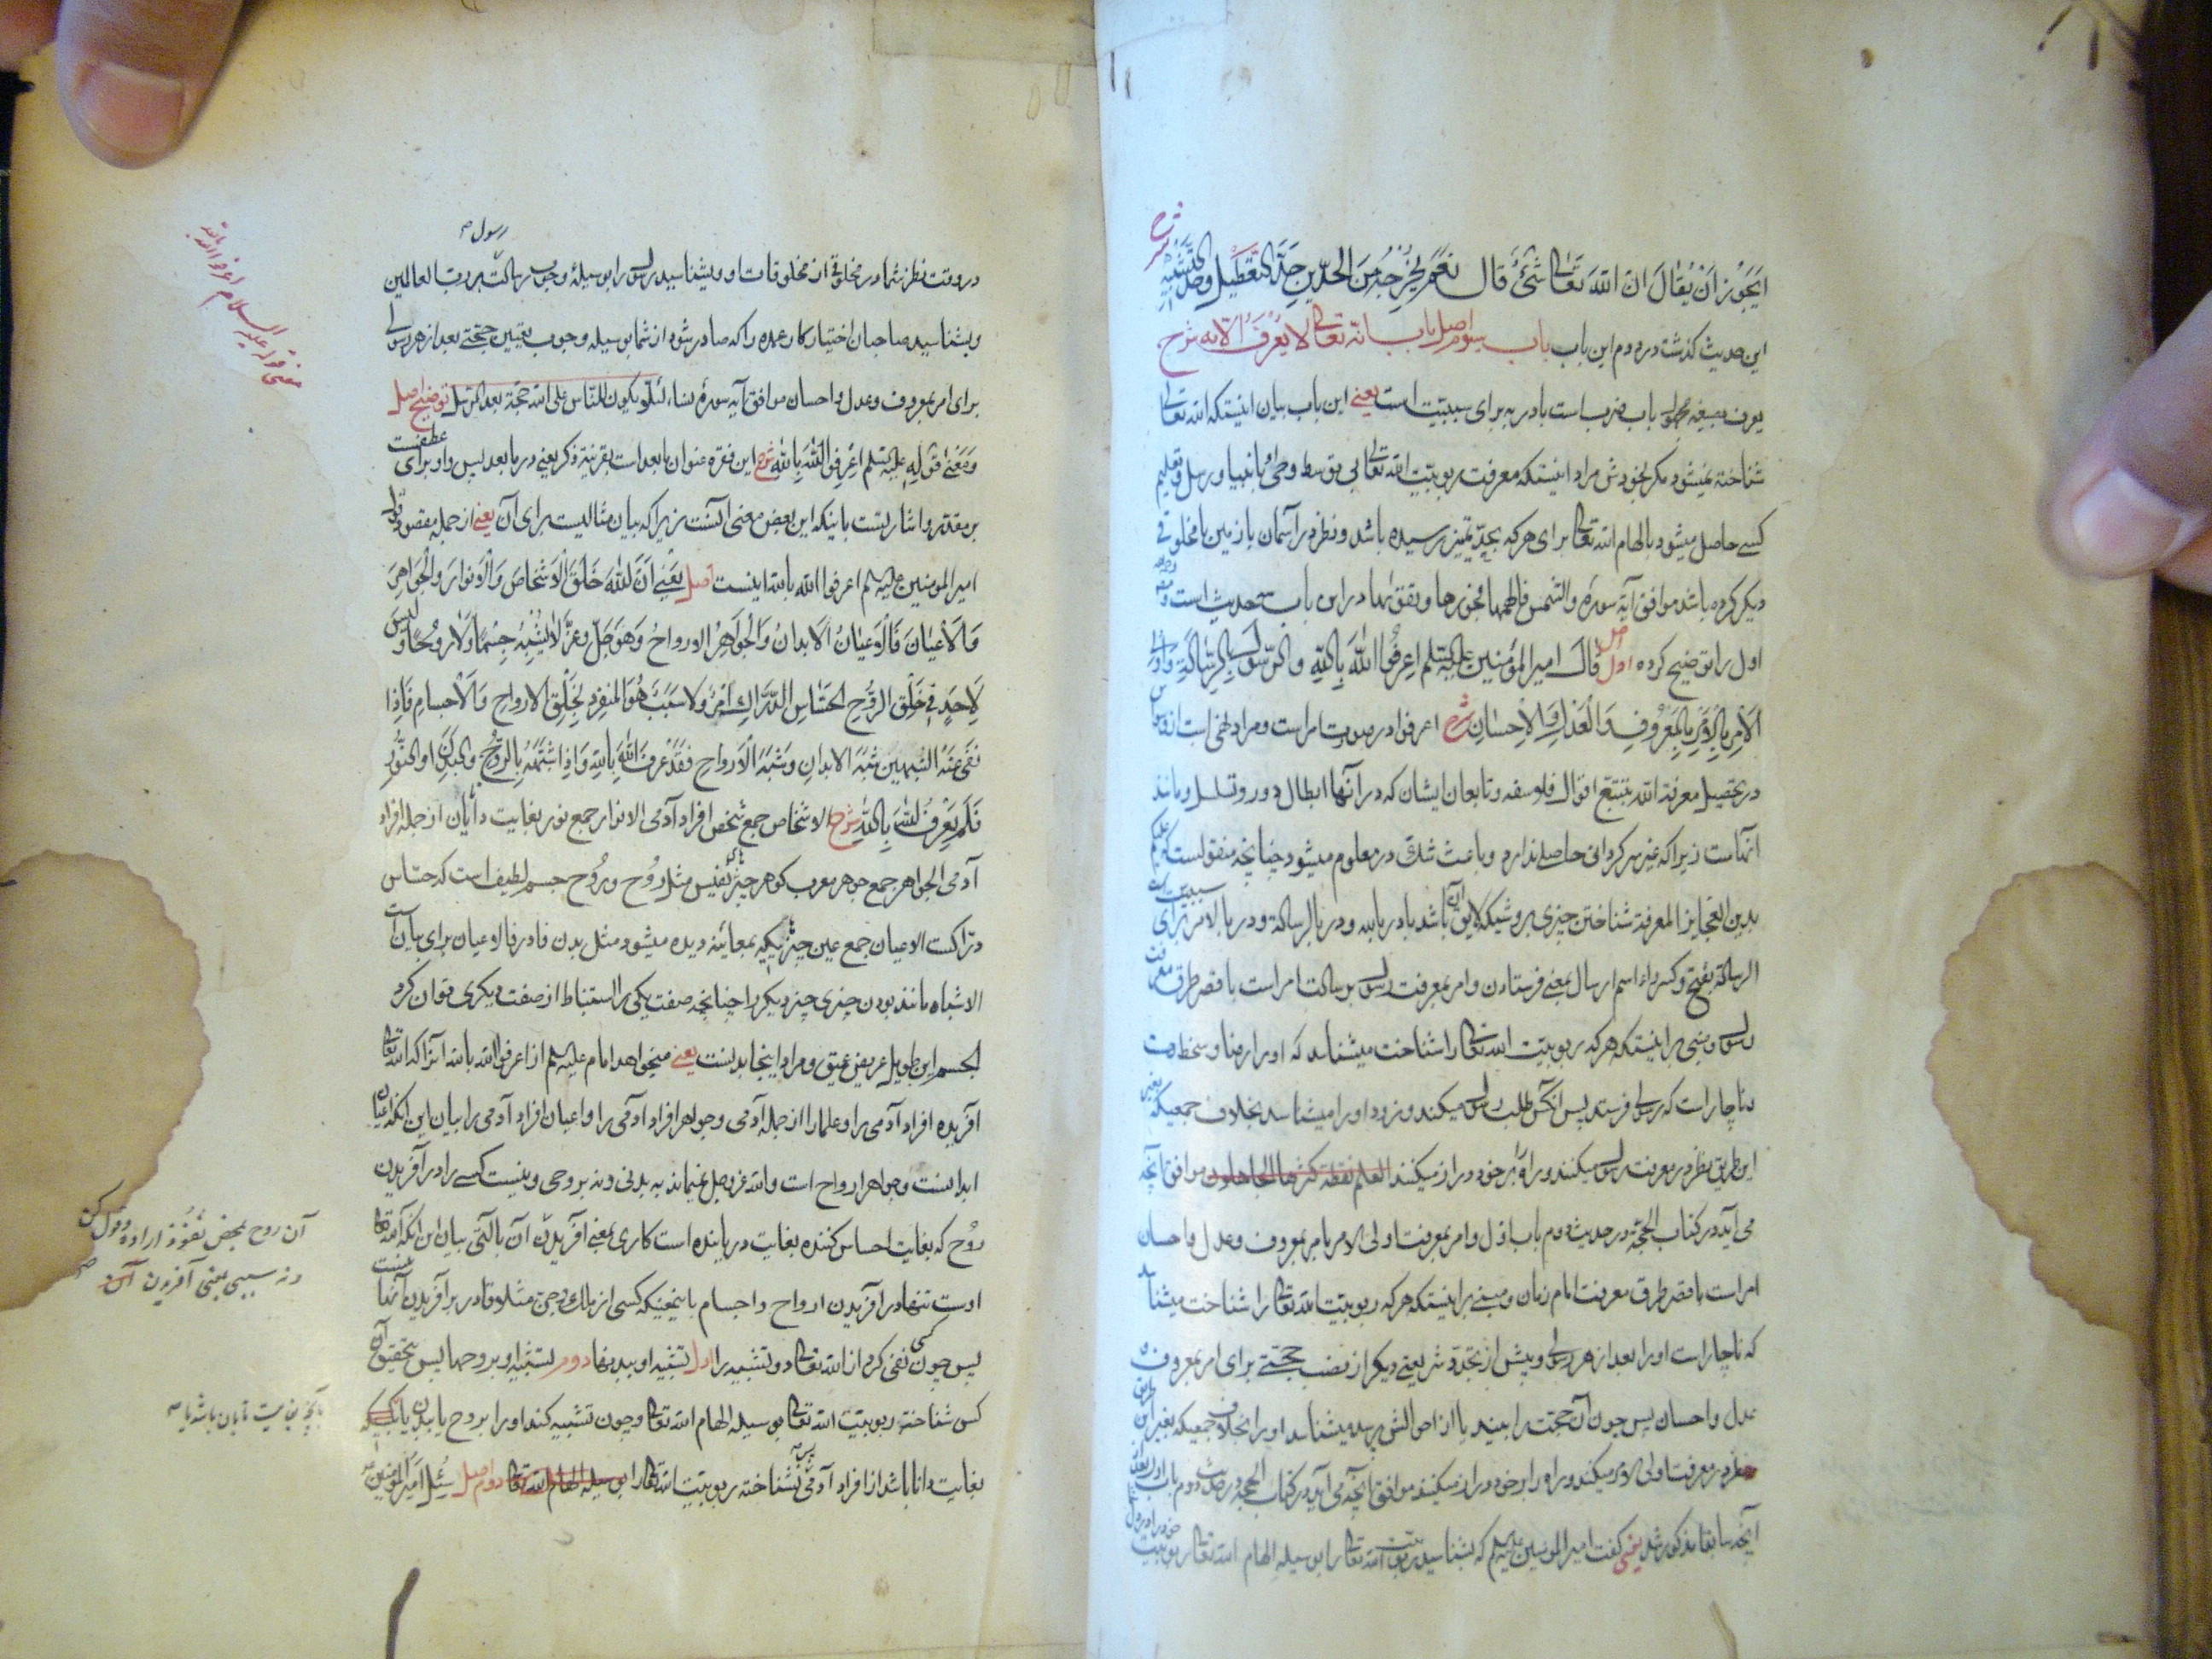 ایجوز ان یقال ان الله تعالی شیء قال نعم یخرجه من الحدین حد التعطیل و حد التشبیه شرح
این حدیث گذشت در دوم این باب باب سوم اصل باب انه تعالی لا یعرف الا به شرح
یعرف بصیغه مجهول باب ضرب است با در به برای سببیت است یعنی این باب بیان اینستکه الله تعالی
شناخته نمیشود مکر بخودش مراد اینستکه معرفت ربوبیت الله تعالی بی توسط وحی او بانبیا و رسل و تعلیم
کسی حاصل میشود بالهام الله تعالی برای هر که بحد تمیز رسیده باشد و نظر در آسمان یا زمین یا مخلوقی
دیکر کرده باشد موافق آیه سوره والشمس فالهمها فجورها و تقویها در این باب سه حدیث است و مصنف رحمه الله
اول را توضیح کرده اول اصل قال امیر المؤمنین علیه السلم اعرفوا الله بالله والرسول بالرسالة و اولی
الامر بالامر بالمعروف والعدل والاحسان شرح اعرفوا در صورت امر است و مراد نهی است از وسواس
در تحصیل معرفة الله بتتبع اقوال فلاسفه و تابعان ایشان که در آنها ابطال دور و تسلسل و مانند
آنهاست زیرا که غیر سرکردانی حاصلی ندارد و باعث شک در معلوم میشود چنانچه منقولست که علیکم
بدین العجایز المعرفة شناختن چیزی بروشیکه لایق آن باشد با در بالله و در بالرسالة و در بالامر برای سببیت است
الرسالة بفتح و کسر راء اسم ارسال بمعنی فرستادن و امر بمعرفت رسول برسالت امر است باقصر طرق معرفت
رسول و مبنی بر اینستکه هر که ربوبیت الله تعالی را شناخت میشناسد که او را رضا و سخط هست
و ناچار است که رسولی فرستد پس آنکس طلب رسول میکند و زود او را میشناسد بخلاف جمعیکه بغیر
این طریق نظر در معرفت رسول میکنند و راه را بر خود دراز میکنند العلم نقطة کثرها الجاهلون موافق آنچه
می آید در کتاب الحجة در حدیث دوم باب اول و امر بمعرفت اولی الامر بامر بمعروف و عدل و احسان
امر است باقصر طرق معرفت امام زمان و مبنی بر اینستکه هر که ربوبیت الله تعالی را شناخت میشناسد
که ناچار است او را بعد از هر رسولی و پیش از تجدد شریعتی دیکر از نصب حجتی برای امر بمعروف و
عدل و احسان پس چون آن حجت را بیند یا از احوالش پرسد میشناسد او را بخلاف جمعیکه بغیر این طریق
نظر در معرفت اولی الامر میکنند و راه را بر خود دراز میکنند موافق آنچه می آید در کتاب الحجة در حدیث دوم باب اول
آنچه سابقا مذکور شد یعنی کفت امیر المومنین علیه السلم که بشناسید ربوبیت الله تعالی را بوسیله الهام الله تعالی ربوبیت خود را در دل
رسول
در وقت نظر شما در مخلوقی از مخلوقات او و بشناسید رسول را بوسیلهٔ وجوب رسالت بر رب العالمین
و بشناسید صاحبان اختیار کار عمده را که صادر شود از شما بوسیله وجوب تعیین حجتی بعد از هر رسولی
برای امر بمعروف و عدل و احسان موافق آیه سورهٔ نساء لئلا یکون للناس علی الله حجة بعد الرسل توضیح اصل
و معنی قوله علیه السلم اعرفوا الله بالله شرح این فقره عنوان مابعد است بقرینه ذکر یعنی در مابعد پس واو برای عطفست
بر مقدر و اشارتست باینکه این بعض معنی آنست زیرا که بیان مثالیست برای آن یعنی از جمله مقصود قول
امیر المومنین علیه السلم اعرفوا الله بالله اینست اصل یعنی ان الله خلق الاشخاص والانوار والجواهر
والاعیان فالاعیان الابدان والجواهر الارواح و هو جل و عز لا یشبه جسما ولا روحا و لیس
لاحد فی خلق الروح الحساس الدراک امر ولا سبب هو المنفرد بخلق الارواح والاجسام فاذا
نفی عنه الشبهین شبه الابدان و شبه الارواح فقد عرف الله بالله و اذا شبهه بالروح او البدن او النور
فلم یعرف الله بالله شرح الاشخاص جمع شخص افراد آدمی الانوار جمع نور بغایت دانایان از جمله افراد
آدمی الجواهر جمع جوهر معرب کوهر چیزهای نفیس مثل روح و روح جسم لطیف است که حساس
دراکست الاعیان جمع عین چیزهائیکه بمعاینه دیده میشود مثل بدن فا در فالاعیان برای بیان است
الاشباه مانند بودن چیزی چیز دیکر را چنانچه صفت یکی را استنباط از صفت دیکری توان کرد
الجسم این طویل عریض عمیق و مراد اینجا بدنست یعنی میخواهد امام علیه السلم از اعرفوا الله بالله آنرا که الله تعالی
آفریده افراد آدمی را و علما را از جمله آدمی و جواهر افراد آدمی را و اعیان افراد آدمی را بیان این آنکه اعیان
ابدانست و جواهر ارواح است و الله عز و جل نمیماند به بدنی و نه بروحی و نیست کسی را در آفریدن
روح که بغایت احساس کننده بغایت دریابنده است کاری بمعنی آفریدن آن بالتی بیان این آنکه الله تعالی
اوست تنها در آفریدن ارواح و اجسام باینمعنیکه کسی از ملک و جن مثلا قادر بر آفریدن آنها نیست
پس چون کسی نفی کرد از الله تعالی دو تشبیه را اول تشبیه او ببدنها دوم تشبیه او بروحها پس بتحقیق آن
کس شناخته ربوبیت الله تعالی بوسیله الهام الله تعالی و چون تشبیه کند او را بروح یا ببدن
بغایت دانا باشد از افراد آدمی پس نشناخته ربوبیت الله تعالی را بوسیله الهام الله تعالی دوم اصل سئل امیر المؤمنین
معنی قوله علیه السلام اعرفوا الله بالله
آن روح بمحض نفوذ اراده و قول کن
و نه سببی بمعنی آفریدن آن